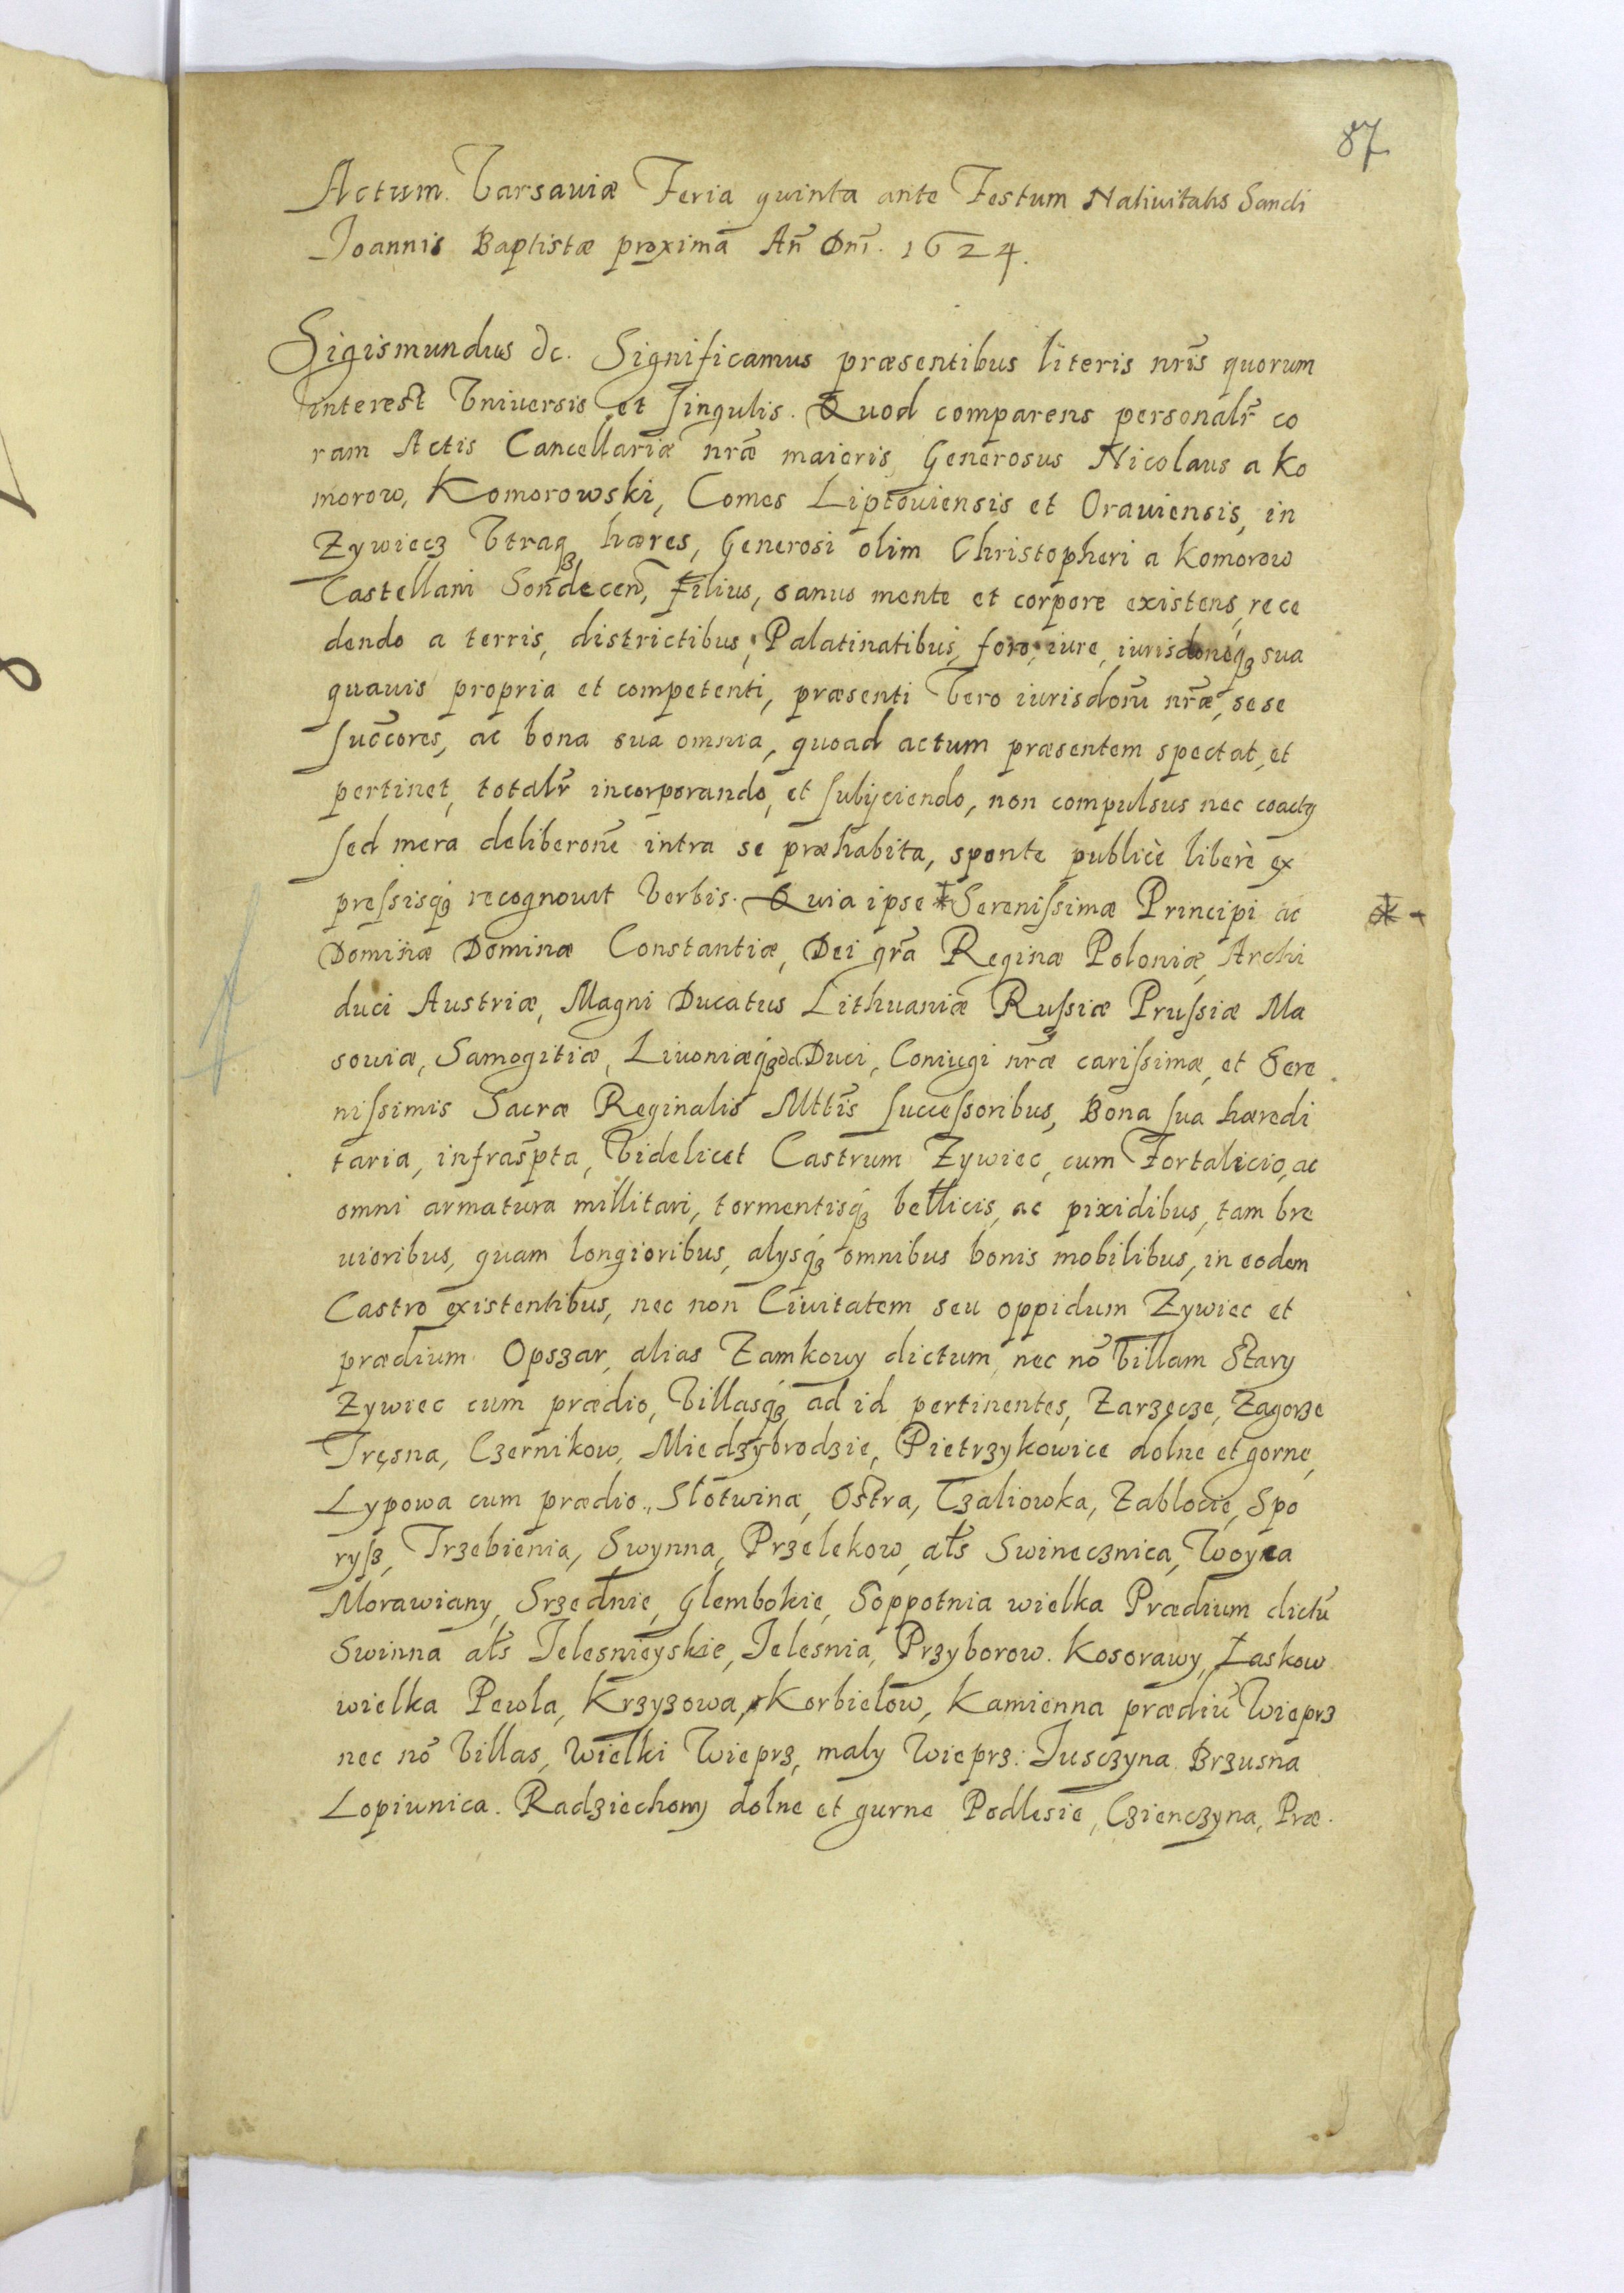 87
Actum Varsaviæ Feria quinta ante Festum Nativitatis Sancti
Joannis Baptistæ proximā Añ Dñi. 1624.
Sigismundus &c. Significamus præsentibus literis nrīs quorum
interest Vniversis et singulis. Quod comparens personalr̄ co
ram Actis Cancellariæ nrǣ maioris, Generosus Nicolaus a Ko
morow, Komorowski, Comes Liptoviensis et Oraviensis, in
Zywiecz Vtraqȝ hæres, Generosi olim Christopheri a Komorow
Castellani Sondecen̄, Filius, sanus mente et corpore existens, rece
dendo a terris, districtibus, Palatinatibus, foro, iure, iurisdoneqȝ sua
quavis propria et competenti, præsenti Vero iurisdoni nrǣ, sese
succ̄ores, ac bona sua omnia, quoad actum præsentem spectat, et
pertinet, totalr̄ incorporando, et subijciendo, non compulsus nec coactꝯ
sed mera deliberone intra se præhabita, sponte publicè liberè ex
pressisqȝ recognovit Verbis. Quia ipse * Serenissimæ Principi ac
Dominæ Dominæ Constantiæ, Dei grā Reginæ Poloniæ, Archi
duci Austriæ, Magni Ducatus Lithuaniæ Russiæ Prussiæ Ma
soviæ, Samogitiæ, Livoniæqȝ &c Duci, Coniugi nrǣ carissimæ, et Sere
nissimis Sacræ Reginalis Mttis successoribus, Bona sua hæredi
taria, infraspta, Videlicet Castrum Zywiec, cum Fortalicio, ac
omni armatura millitari, tormentisqȝ bellicis, ac pixidibus, tam bre
vioribus, quam longioribus, alysqȝ omnibus bonis mobilibus, in eodem
Castro existentibus, nec non Civitatem seu oppidum Zywiec et
prædium Opszar, alias Zamkowy dictum, nec nō Villam Stary
Zywiec cum prædio, Villasqȝ ad id pertinentes, Zarzęcze, Zagorze
Tręsna, Czernikow, Miedzybrodzie, Pietrzykowice dolne et gorne,
Lypowa cum prædio, Słotwina, Ostra, Czaliowka, Zablocie, Spo
rysz, Trzebienia, Swynna, Przelekow, ałs Swinecznica, Woyna
Morawiany, Srzednie, Glembokie, Soppotnia wielka Prædium dictū
Swinna ałs Jelesnieyskie, Jelesnia, Przyborow. Kosorawy, Łaskow
wielka Pewla, Krzyzowa, Korbielow, Kamienna prædiū Wieprz
nec nō Villas, Wielki Wieprz, maly Wieprz. Jusczyna. Brzusna
Lopiunica. Radziechowy dolne et gurne Podlesie, Czienczyna, Præ.